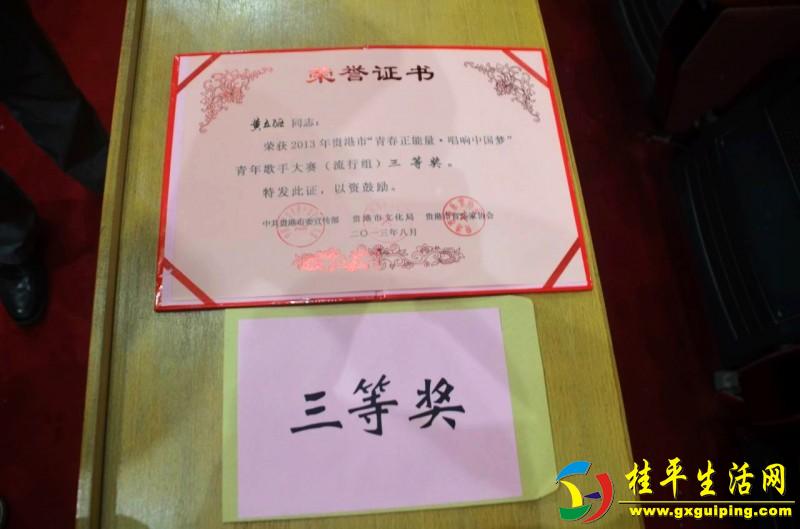 荣誉证书
同志:
荣获2013年贵港市“青春正能量·唱响中国梦”
青年歌手大赛(流行组)三等奖。
特发此证,以资鼓励。
中共贵港市委宣传部 贵港市文化局 贵港市音乐家协会
二〇一三年八月
三等奖
桂平生活网
www.gxguiping.com